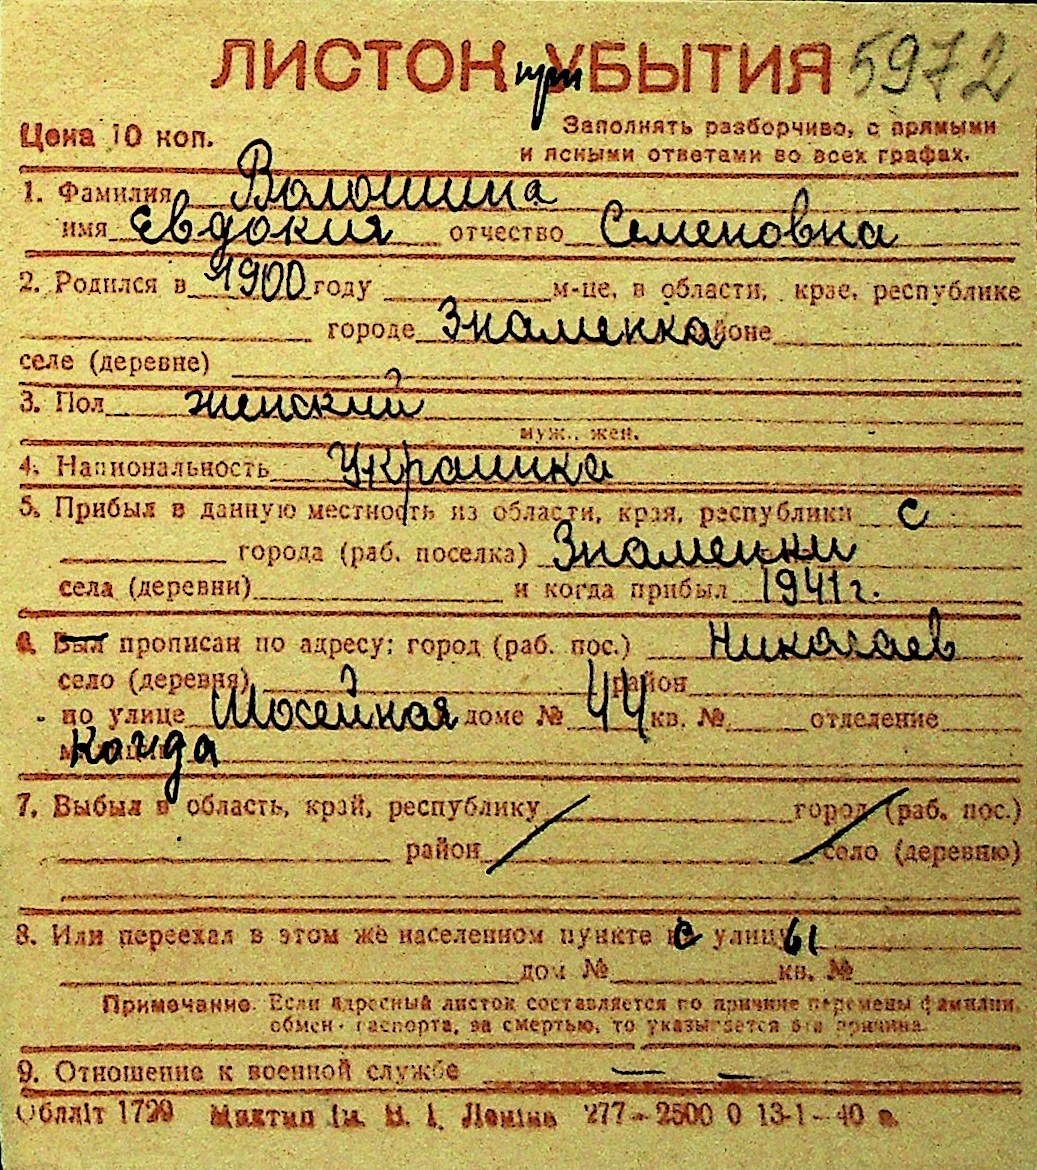 ЛИСТОК при УБЫТИЯ 5972
Цена 10 коп.
Заполнять разборчиво, с прямыми
и ясными ответами во всех графах.
1. Фамилия Волошина
имя Евдокия отчество Семеновна
2. Родился в 1900 году м-це, в области, крае, республике
городе Знаменка районе
селе (деревне)
3. Пол женский
муж., жен.
4. Национальность Украинка
5. Прибыл в данную местность из области, края, республики с
города (раб. поселка) Знаменки
села (деревни) и когда прибыл 1941 г.
6. Был прописан по адресу: город (раб. пос.) Николаев
село (деревня) район
по улице Шосейная доме № 44 кв. № отделение
милиции
7. Выбыл в область, край, республику город (раб. пос.)
район село (деревню)
8. Или переехал в этом же населенном пункте с улицы
дом № кв. №
Примечание. Если адресный листок составляется по причине перемены фамилии,
обмен паспорта, за смертью, то указывается эта причина.
9. Отношение к военной службе — —
Обллiт 1729 Миктип iм. В. I. Ленiна 277—2500 0 13-1—40 в.